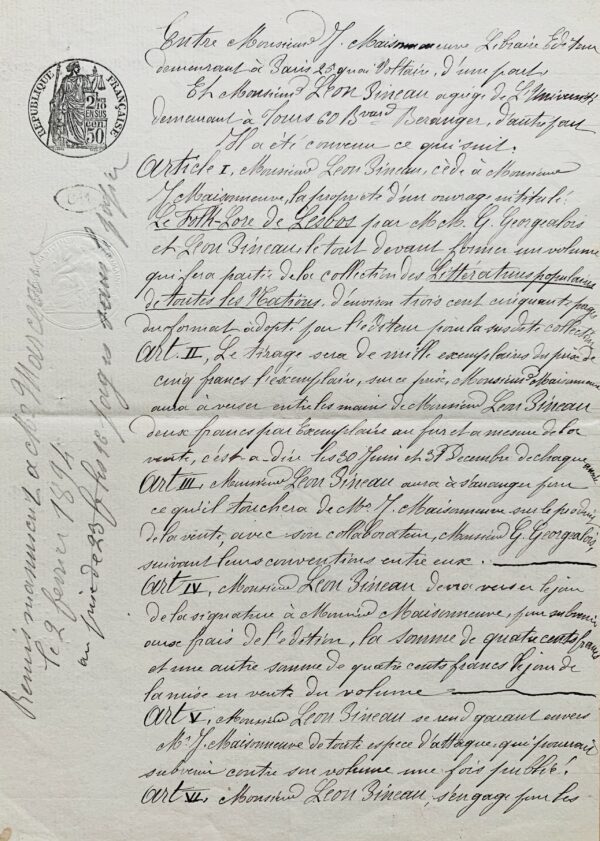 RÉPUBLIQUE FRANÇAISE
Entre Monsieur J. Maisonneuve Libraire Editeur
demeurant à Paris 25 quai Voltaire, d'une part
Et Monsieur Léon Pineau agrégé de L'Université
demeurant à Tours 60 Bvard Béranger, d'autre part
Il a été convenu ce qui suit.
Article I, Monsieur Léon Pineau, cède à Monsieur
J. Maisonneuve, la propriété d'un ouvrage intitulé:
Le Folk-Lore de Lesbos par M.M. G. Georgeakis
et Léon Pineau, le tout devant former un volume
qui fera partie de la collection des Littératures populaires
de toutes les Nations, d'environ trois cent cinquante pages
du format adopté par l'éditeur pour la susdite collection
Art. II, Le tirage sera de mille exemplaires du prix de
cinq francs l'exemplaire, sur ce prix, Monsieur Maisonneuve
aura à verser entre les mains de Monsieur Léon Pineau
deux francs par Exemplaire au fur et a mesure de la
vente, c'est a-dire les 30 Juin et 31 Décembre de chaque année
Art III, Monsieur Léon Pineau aura à s'arranger pour
ce qu'il touchera de Mr. J. Maisonneuve sur le produit
de la vente, avec son collaborateur, Monsieur G. Georgeakis
suivant leurs conventions entre eux.
Art IV, Monsieur Léon Pineau devra verser le jour
de la signature à Monsieur Maisonneuve, pour subvenir
aux frais de l'édition, la somme de quatre cents francs
et une autre somme de quatre cents francs le jour de
la mise en vente du volume
Art V, Monsieur Léon Pineau se rend garant envers
Mr. J. Maisonneuve de toute espèce d'attaque, qui pourrait
subvenir contre son volume une fois publié.
Art VI, Monsieur Léon Pineau, s'engage pour les
Remis manuscrit a Mr
le 2 février 1894
au prix de 23 f les 16 pages sans papier